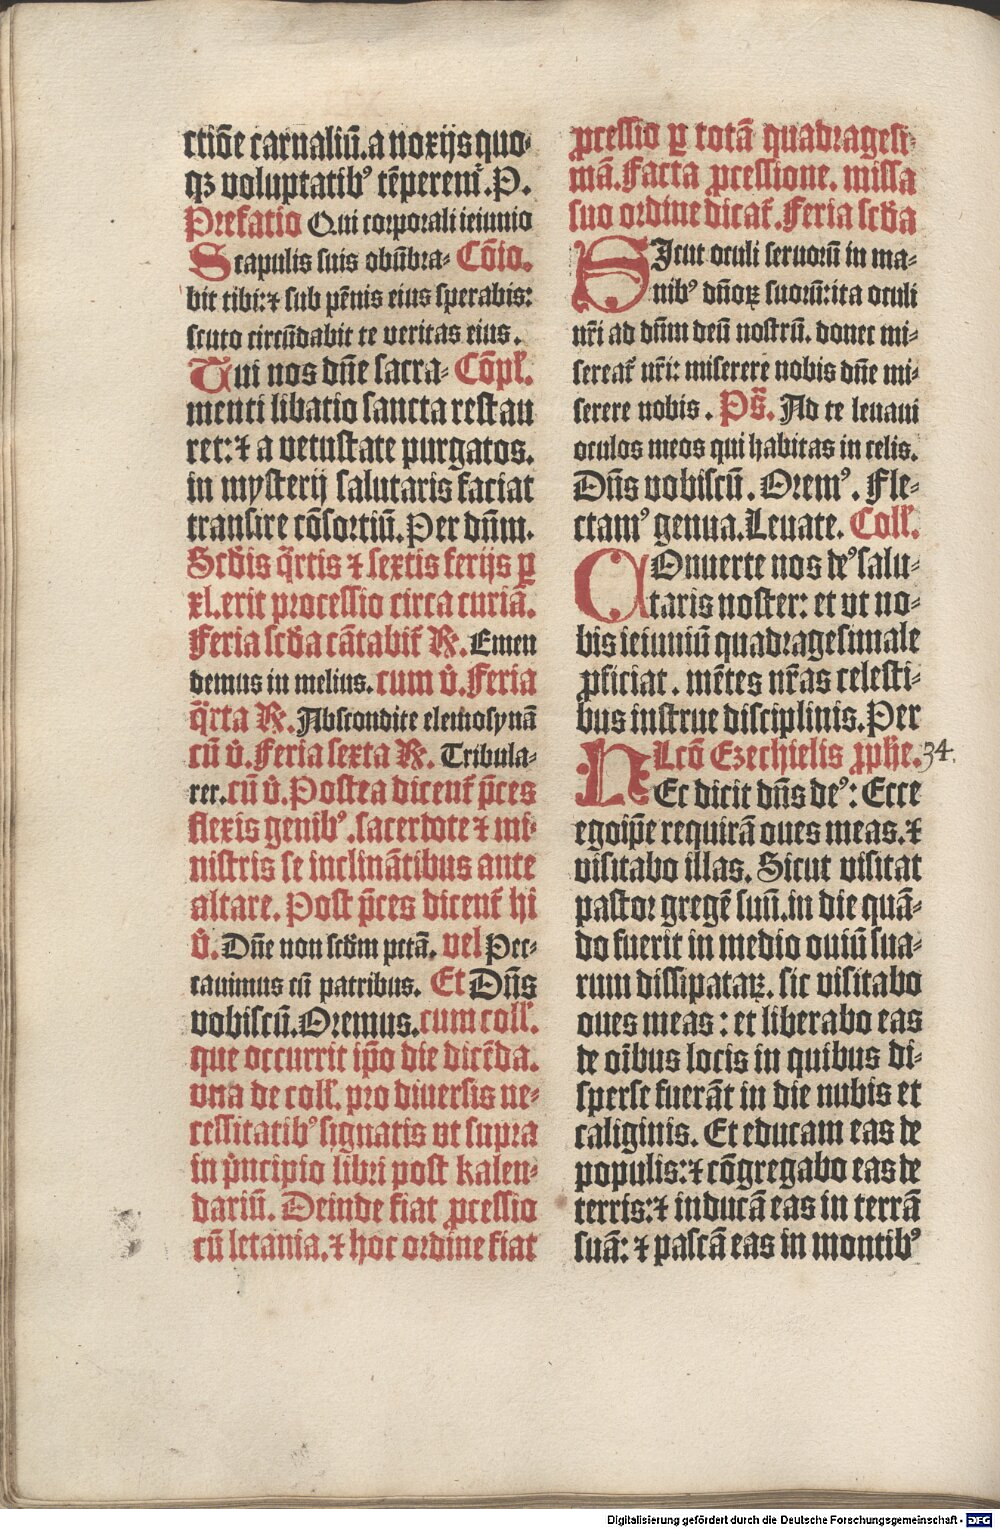 ctiōe carnaliū. a noxijs quo-
qꝫ voluptatibꝰ tēperemꝰ. P.
Prefatio Qui corporali ieiunio
Scapulis suis obūbra- Cōio.
bit tibi: ⁊ sub pēnis eius sperabis:
scuto circūdabit te veritas eius.
Tui nos dn̄e sacra- Cōpl̄.
menti libatio sancta restau
ret: ⁊ a vetustate purgatos.
in mysterij salutaris faciat
transire cōsortiū. Per dnm̄.
Scd̄is q̄rtis ⁊ sextis ferijs ꝑ
xl. erit processio circa curiā.
Feria scd̄a cātabit̄ ℟. Emen
demus in melius. cum v̄. Feria
q̄rta ℟. Abscondite elemosynā
cū v̄. Feria sexta ℟. Tribula-
rer. cū v̄. Postea dicent̄ p̄ces
flexis genibꝰ. sacerdote ⁊ mi-
nistris se inclinātibus ante
altare. Post p̄ces dicent̄ hi
v̄. Dn̄e non scd̄m pctā. vel Pec-
cauimus cū patribus. Et Dn̄s
vobiscū. Oremus. cum coll̄.
que occurrit ip̄o die dicēda.
vna de coll̄. pro diuersis ne-
cessitatibꝰ signatis vt supra
in p̄ncipio libri post kalen-
dariū. Deinde fiat ꝓcessio
cū letania. ⁊ hoc ordine fiat
ꝓcessio ꝑ totā quadragesi-
mā. Facta ꝓcessione. missa
suo ordine dicat̄. Feria scd̄a
SIcut oculi seruorū in ma-
nibꝰ dn̄oꝝ suorū: ita oculi
nr̄i ad dn̄m deū nostrū. donec mi-
sereat̄ nr̄i: miserere nobis dn̄e mi-
serere nobis. Ps̄. Ad te leuaui
oculos meos qui habitas in celis.
Dn̄s vobiscū. Oremꝰ. Fle-
ctamꝰ genua. Leuate. Coll̄.
COnuerte nos deꝰ salu-
taris noster: et vt no-
bis ieiuniū quadragesimale
ꝓficiat. mētes nr̄as celesti-
bus instrue disciplinis. Per
Lcō Ezechielis ꝓphe. 34.
HEc dicit dn̄s deꝰ: Ecce
egoip̄e requirā oues meas. ⁊
visitabo illas. Sicut visitat
pastor gregē suū. in die quā-
do fuerit in medio ouiū sua-
rum dissipataꝝ. sic visitabo
oues meas: et liberabo eas
de oībus locis in quibus di-
sperse fuerāt in die nubis et
caliginis. Et educam eas de
populis: ⁊ cōgregabo eas de
terris: ⁊ inducā eas in terrā
suā: ⁊ pascā eas in montibꝰ
Digitalisierung gefördert durch die Deutsche Forschungsgemeinschaft - DFG